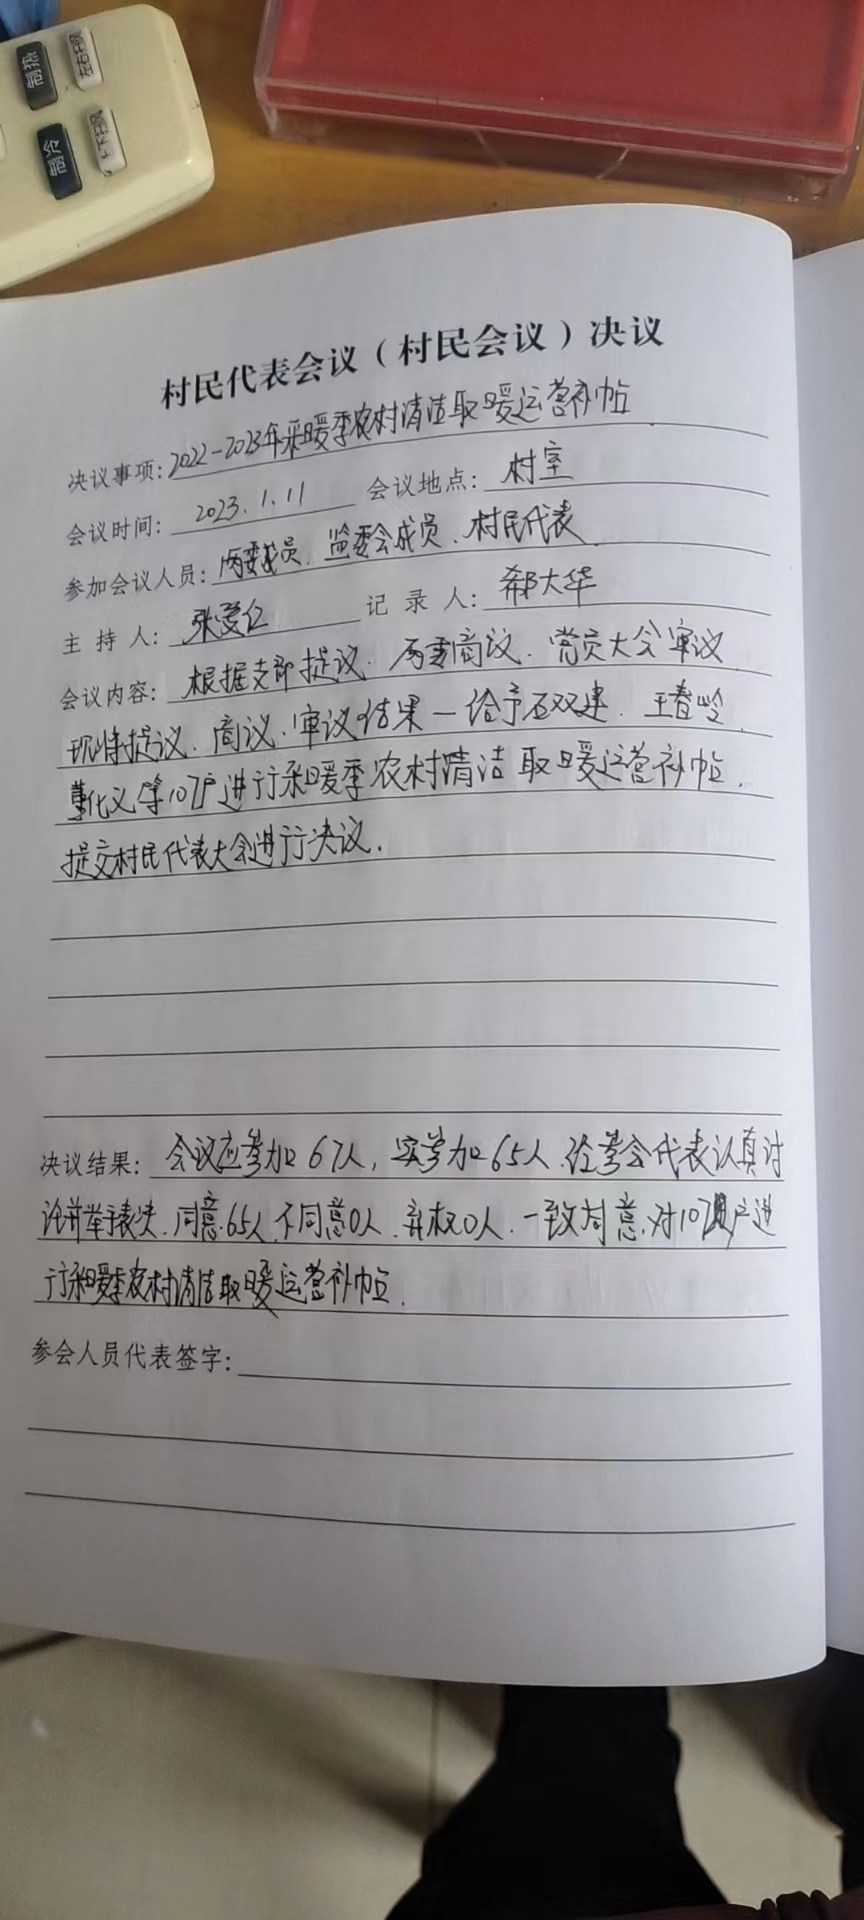 制热
制冷
村民代表会议（村民会议）决议
决议事项：2022-2023年采暖季农村清洁取暖运营补帖
会议时间：2023.1.11 会议地点：村室
参加会议人员：两委成员、监委会成员、村民代表
主持人：张爱仁 记录人：郗大华
会议内容：根据支部提议、两委商议、党员大会审议
现将提议、商议、审议结果—给予石双建、王春岭
董化义等107户进行采暖季农村清洁取暖运营补帖，
提交村民代表大会进行决议.
决议结果：会议应参加67人，实参加65人、经参会代表认真讨
论并举手表决、同意65人、不同意0人、弃权0人、一致同意、对107户进
行采暖季农村清洁取暖运营补帖.
参会人员代表签字：